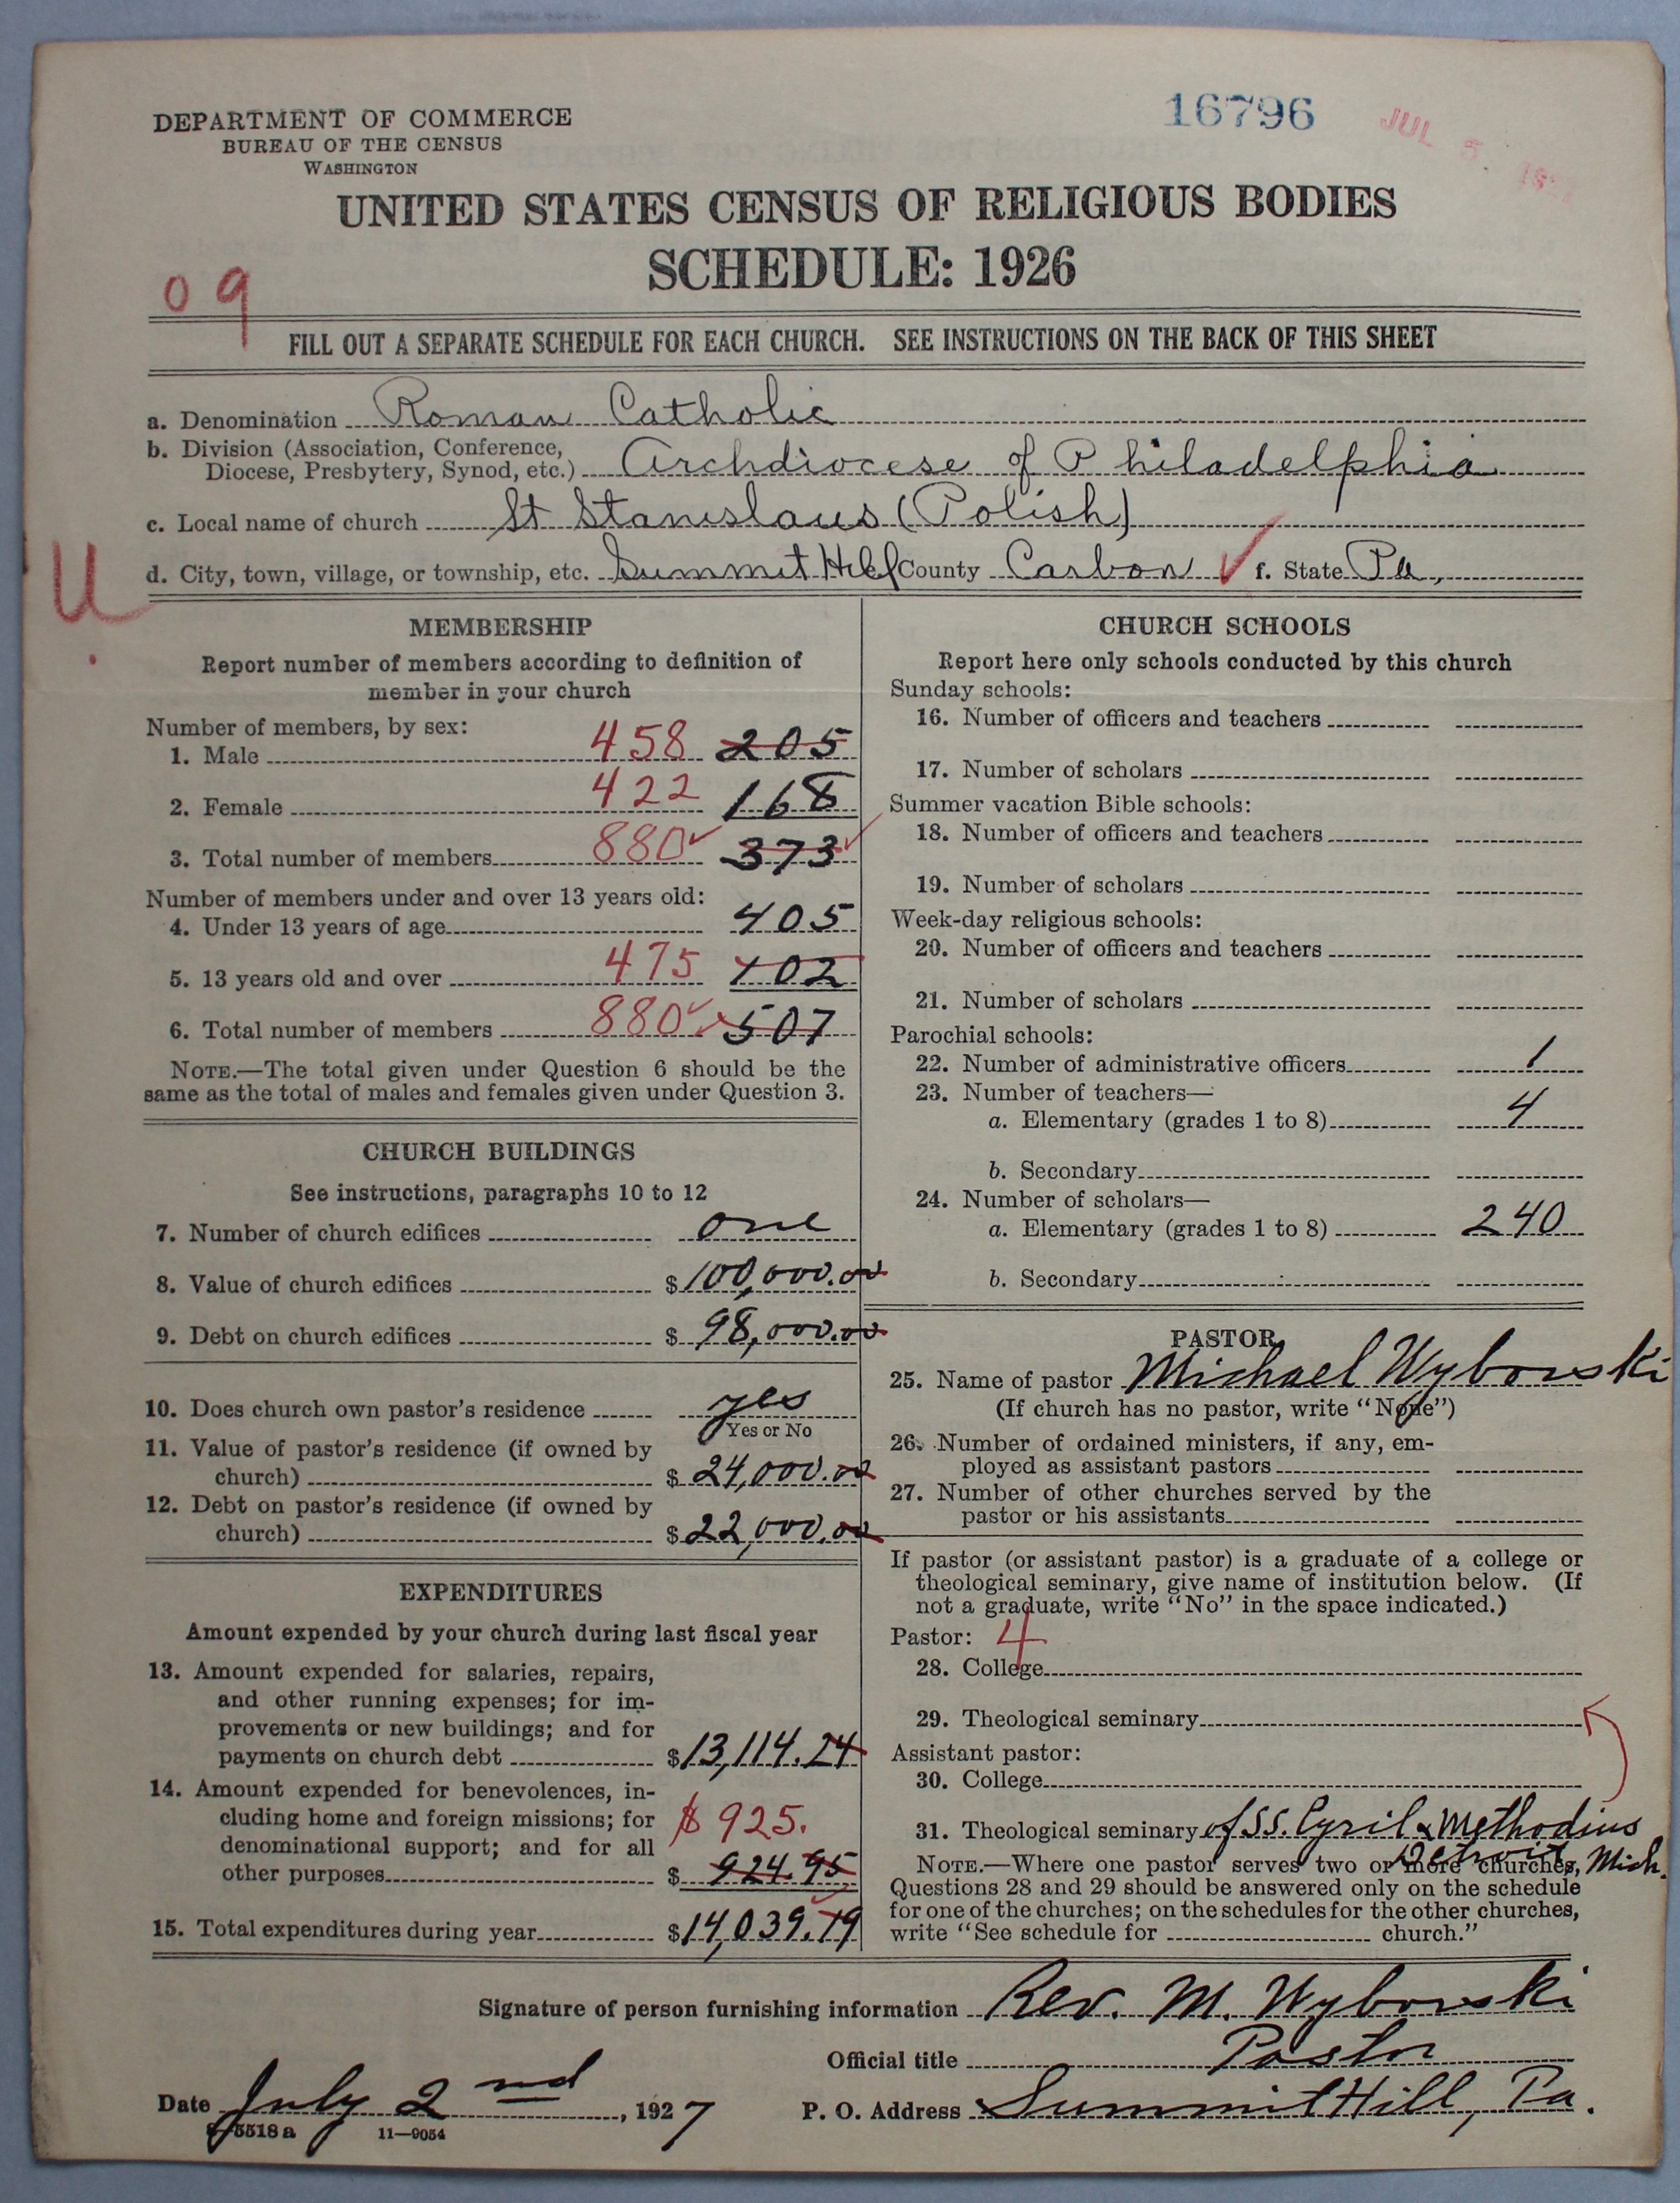 DEPARTMENT OF COMMERCE
BUREAU OF THE CENSUS
WASHINGTON
16796
JUL 5
UNITED STATES CENSUS OF RELIGIOUS BODIES
SCHEDULE: 1926
09
FILL OUT A SEPARATE SCHEDULE FOR EACH CHURCH. SEE INSTRUCTIONS ON THE BACK OF THIS SHEET
a. Denomination Roman Catholic
b. Division (Association, Conference,
Diocese, Presbytery, Synod, etc.) Archdiocese of Philadelphia
c. Local name of church St Stanislaus (Polish)
U
d. City, town, village, or township, etc. Summit Hill County Carbon ✓ f. State Pa.
MEMBERSHIP
Report number of members according to definition of
member in your church
Number of members, by sex:
1. Male 458 205
2. Female 422 168
3. Total number of members 880✓ 373✓
Number of members under and over 13 years old:
4. Under 13 years of age 405
5. 13 years old and over 475 102
6. Total number of members 880✓ 507
NOTE.—The total given under Question 6 should be the
same as the total of males and females given under Question 3.
CHURCH BUILDINGS
See instructions, paragraphs 10 to 12
7. Number of church edifices one
8. Value of church edifices $100,000.00
9. Debt on church edifices $98,000.00
10. Does church own pastor's residence yes
Yes or No
11. Value of pastor's residence (if owned by
church) $24,000.00
12. Debt on pastor's residence (if owned by
church) $22,000.00
EXPENDITURES
Amount expended by your church during last fiscal year
13. Amount expended for salaries, repairs,
and other running expenses; for im-
provements or new buildings; and for
payments on church debt $13,114.24
14. Amount expended for benevolences, in-
cluding home and foreign missions; for $925.
denominational support; and for all
other purposes $924.95
15. Total expenditures during year $14,039.19
CHURCH SCHOOLS
Report here only schools conducted by this church
Sunday schools:
16. Number of officers and teachers
17. Number of scholars
Summer vacation Bible schools:
18. Number of officers and teachers
19. Number of scholars
Week-day religious schools:
20. Number of officers and teachers
21. Number of scholars
Parochial schools:
22. Number of administrative officers 1
23. Number of teachers—
a. Elementary (grades 1 to 8) 4
b. Secondary
24. Number of scholars—
a. Elementary (grades 1 to 8) 240
b. Secondary
PASTOR
25. Name of pastor Michael Wybowski
(If church has no pastor, write "None")
26. Number of ordained ministers, if any, em-
ployed as assistant pastors
27. Number of other churches served by the
pastor or his assistants
If pastor (or assistant pastor) is a graduate of a college or
theological seminary, give name of institution below. (If
not a graduate, write "No" in the space indicated.)
Pastor: 4
28. College
29. Theological seminary
Assistant pastor:
30. College
31. Theological seminary of SS. Cyril & Methodius
Detroit, Mich.
NOTE.—Where one pastor serves two or more churches,
Questions 28 and 29 should be answered only on the schedule
for one of the churches; on the schedules for the other churches,
write "See schedule for church."
Signature of person furnishing information Rev. M. Wybowski
Official title Pastor
Date July 2nd, 1927 P. O. Address Summit Hill, Pa.
5518a 11—9054